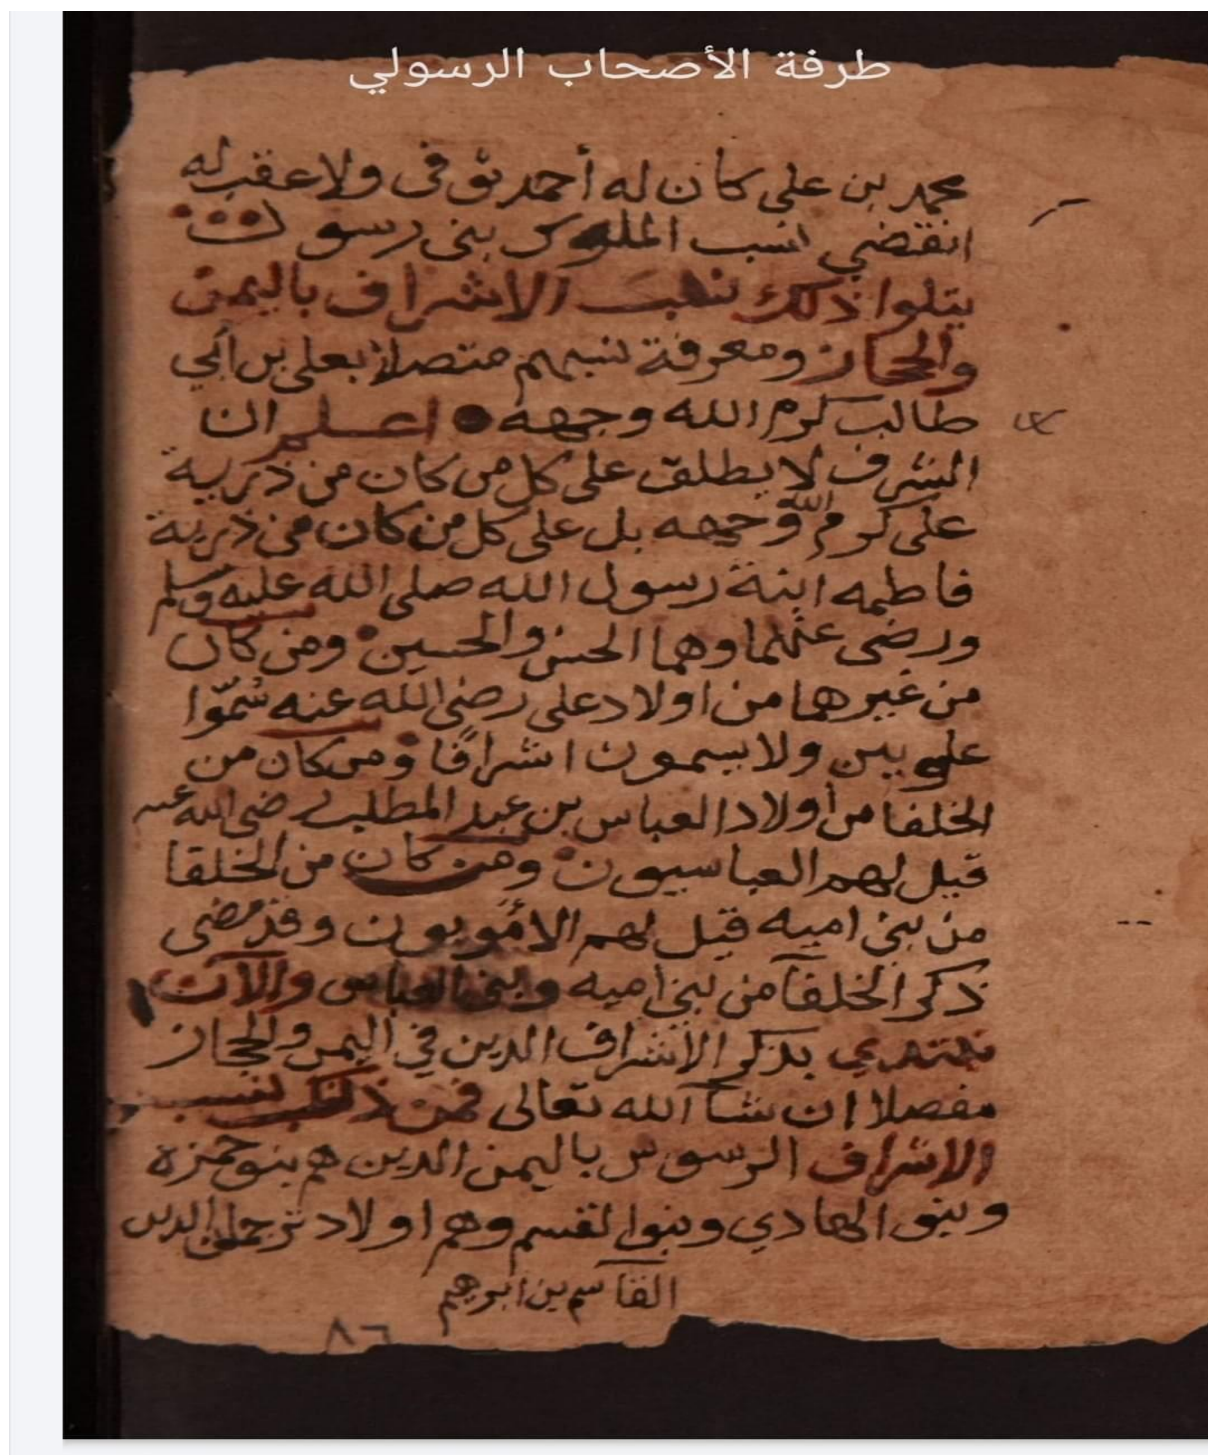 طرفة الأصحاب الرسولي
محمد بن علي كان له أحمد توفى ولا عقب له
انقضي نسب الملوك بنى رسول
يتلوا ذلك نسب الاشراف باليمن
والحجاز ومعرفة نسبهم متصلا بعلي بن ابي
طالب كرم الله وجهه اعلم ان
الشرف لا يطلق على كل من كان من ذرية
على كرم الله وجهه بل على كل من كان من ذرية
فاطمه ابنة رسول الله صلى الله عليه وسلم
ورضى عنهما وهما الحسن والحسين ومن كان
من غيرهما من اولاد على رضى الله عنه سُمّوا
علويين ولا يسمون اشرافًا ومن كان من
الخلفا من أولاد العباس بن عبد المطلب رضى الله عنه
قيل لهم العباسيون ومن كان من الخلفا
من بنى اميه قيل لهم الأمويون وقد مضى
ذكر الخلفآ من بنى اميه وبنى العباس والآن
نبتدي بذكر الأشراف الدين في اليمن والحجاز
مفصلا ان شآ الله تعالى فمن ذلك نسب
الاشراف باليمن الدين هم بنو حمزة
وبنو الهادي وبنوا لقسم وهم اولاد الدين
القاسم بن ابرهيم
٨٦